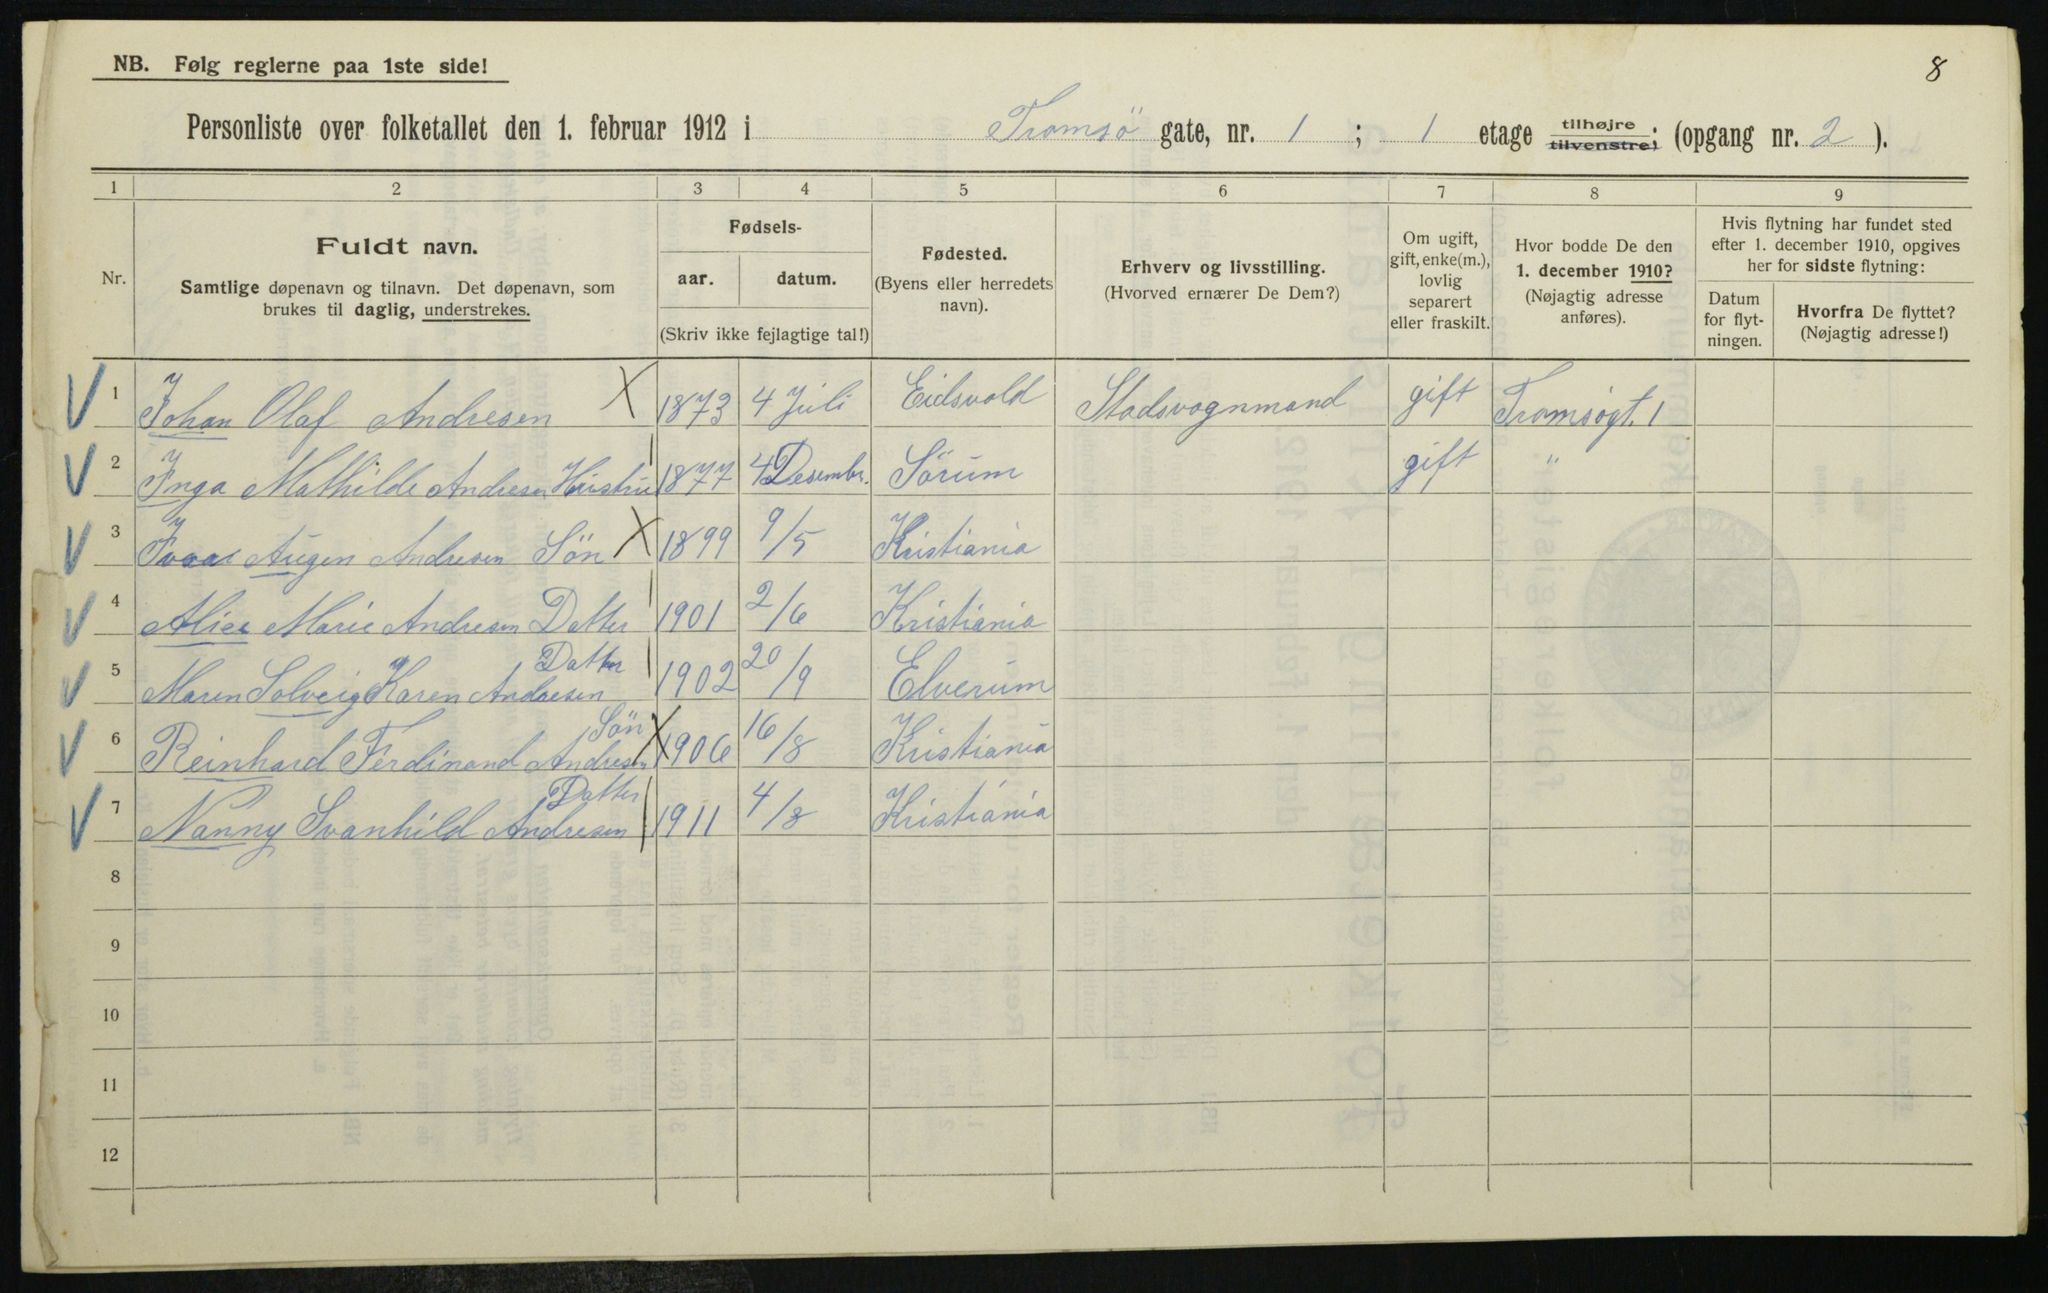 8
NB. Følg reglerne paa 1ste side!
Personliste over folketallet den 1. februar 1912 i Tromsö gate, nr. 1 ; 1 etage tilhøjre tilvenstre; (opgang nr. 2 ).
1 2 3 4 5 6 7 8 9
Nr.
Fuldt navn.
Samtlige døpenavn og tilnavn. Det døpenavn, som
brukes til daglig, understrekes.
Fødsels-
aar. datum.
(Skriv ikke fejlagtige tal!)
Fødested.
(Byens eller herredets
navn).
Erhverv og livsstilling.
(Hvorved ernærer De Dem?)
Om ugift,
gift, enke(m.),
lovlig
separert
eller fraskilt.
Hvor bodde De den
1. december 1910?
(Nøjagtig adresse
anføres).
Hvis flytning har fundet sted
efter 1. december 1910, opgives
her for sidste flytning:
Datum
for flyt-
ningen.
Hvorfra De flyttet?
(Nøjagtig adresse!)
1 Johan Olaf Andresen 1873 4 Juli Eidsvold Stadsvognmand gift Tromsøgt. 1
2 Inga Mathilde Andresen Hustru 1877 4 Desember. Sörum gift "
3 Augen Andresen Sön 1899 9/5 Kristiania
4 Alice Marie Andresen Datter 1901 2/6 Kristiania
5 Maren Solveig Karen Andresen Datter 1902 20/9 Elverum
6 Reinhard Ferdinand Andresen Sön 1906 16/8 Kristiania
7 Nanny Svanhild Andresen Datter 1911 4/8 Kristiania
8
9
10
11
12